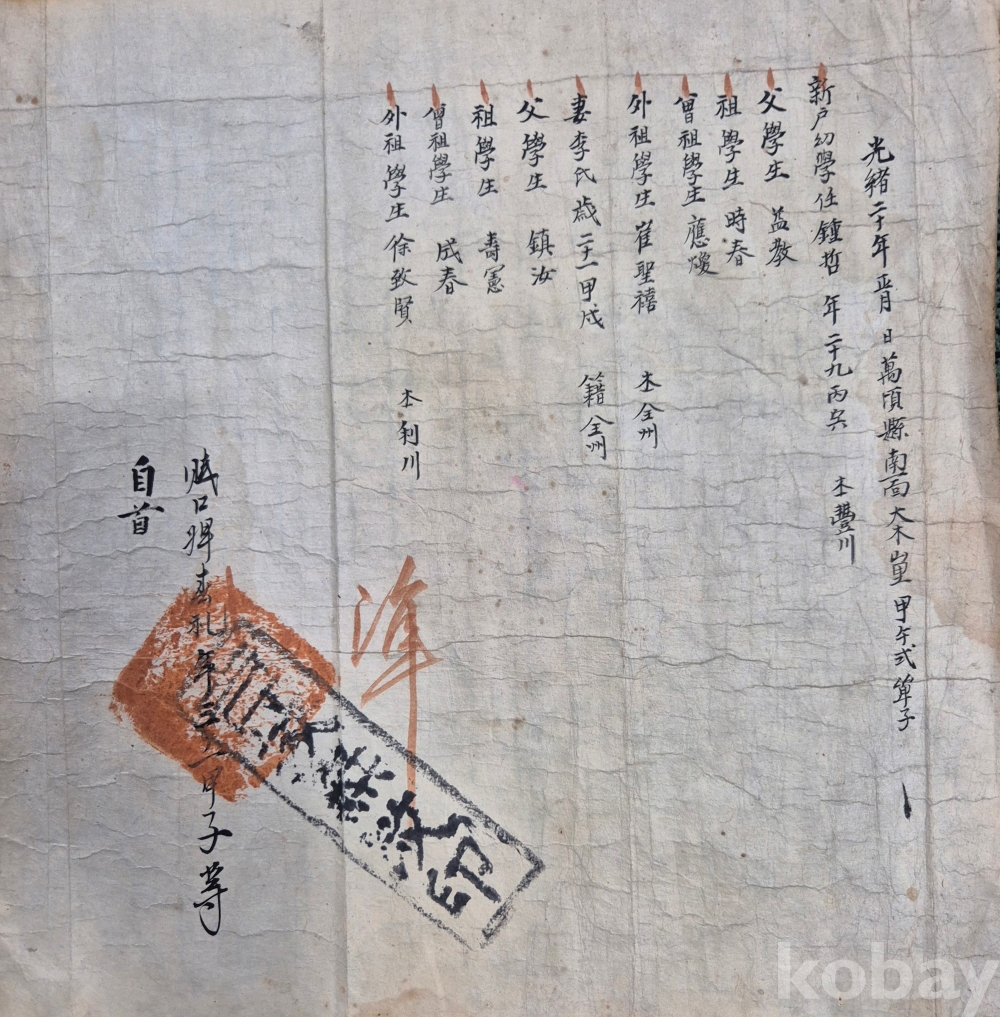 光緖二十年 正月 日 萬頃縣 南面 大木里 甲午式 單子
新戶幼學任鍾哲 年二十九丙寅 本豐川
父學生 益敎
祖學生 時春
曾祖學生 應爕
外祖學生 崔聖禧 本全州
妻李氏歲二十一甲戌 籍全州
父學生 鎭汝
祖學生 壽憲
曾祖學生 成春
外祖學生 徐致賢 本利川
賤口婢春礼 年三十一甲子等
自首
準
印
kobay